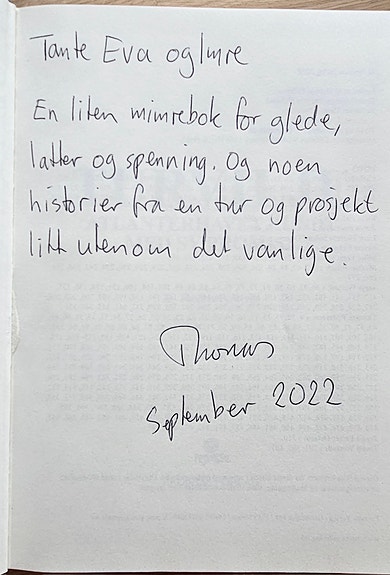 Tante Eva og Imre
En liten mimrebok for glede,
latter og spenning. Og noen
historier fra en tur og prosjekt
litt utenom det vanlige.
Thomas
September 2022